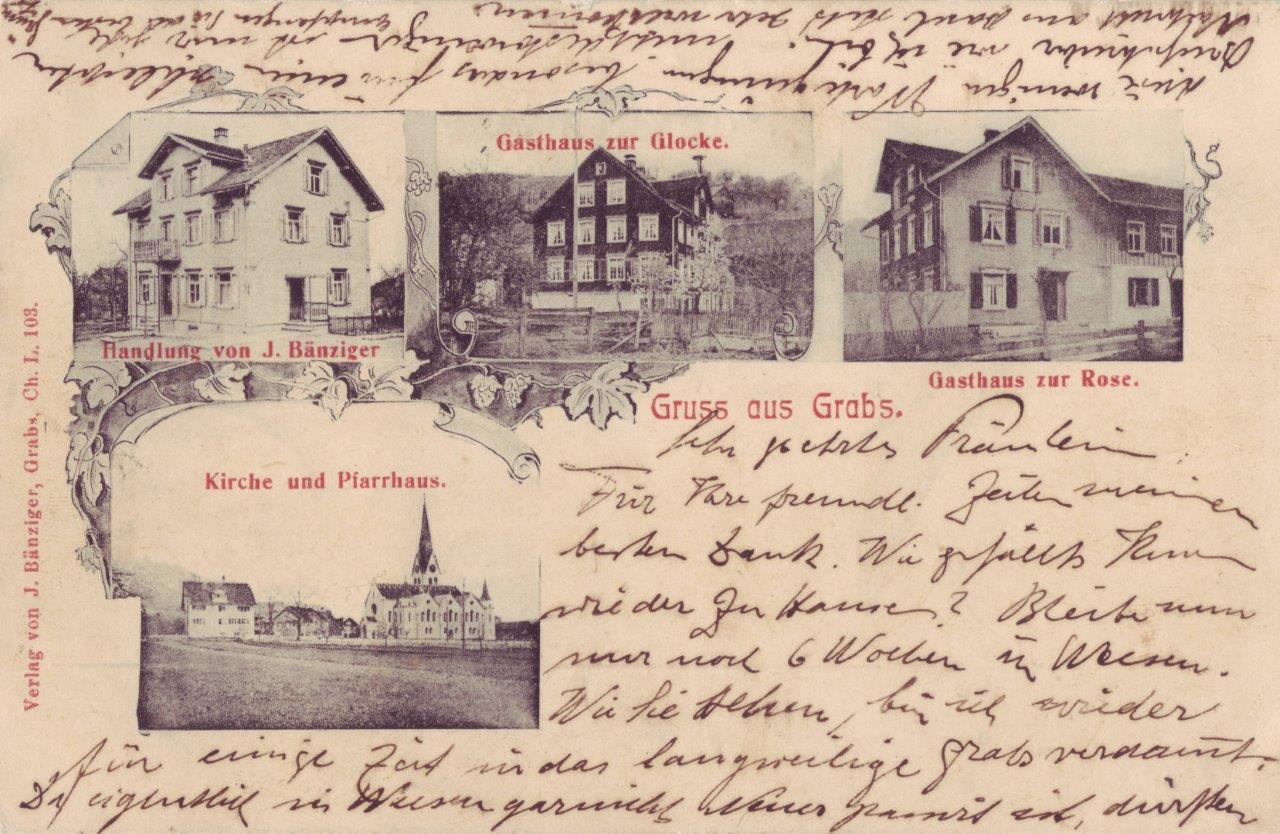 Gasthaus zur Glocke.
Handlung von J. Bänziger
Gasthaus zur Rose.
Gruss aus Grabs.
Kirche und Pfarrhaus.
Verlag von J. Bänziger, Grabs, Ch. L. 103.
Fräulein
Für Ihre freundl. Zeilen meinen
besten Dank. Wie gefällts Ihnen
wieder zu Hause? Bleibe nun
nur noch 6 Wochen in Weesen.
Wie Sie sehen, bin ich wieder
für einige Zeit in das langweilige Grabs verdammt.
Da eigentlich in Weesen garnicht passirt ist, dürften
diese wenigen besonders für einen schlechten
Briefschreiber wie ich bin.